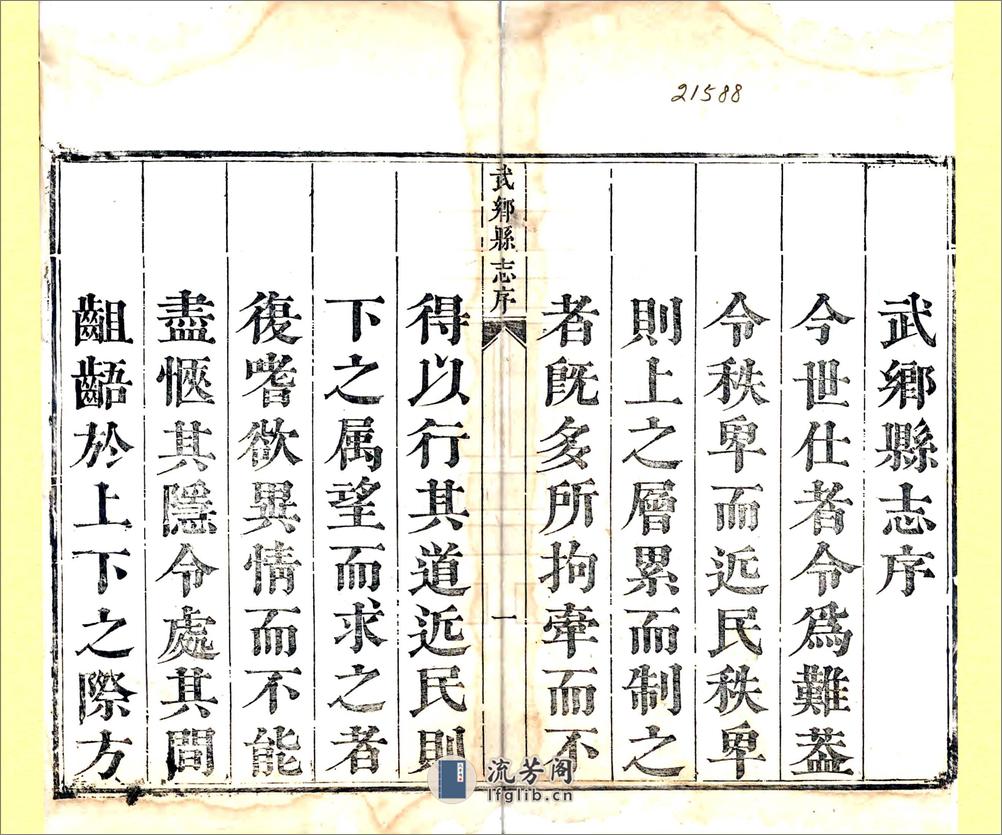 21588
武鄉縣志序
今世仕者令爲難葢
令秩卑而近民秩卑
則上之層累而制之
者旣多所拘牽而不
武鄉縣志序
一
得以行其道近民則
下之属望而求之者
復嗜欲異情而不能
盡愜其隱令處其間
齟齬於上下之際方
流芳阁
lfglib.cn